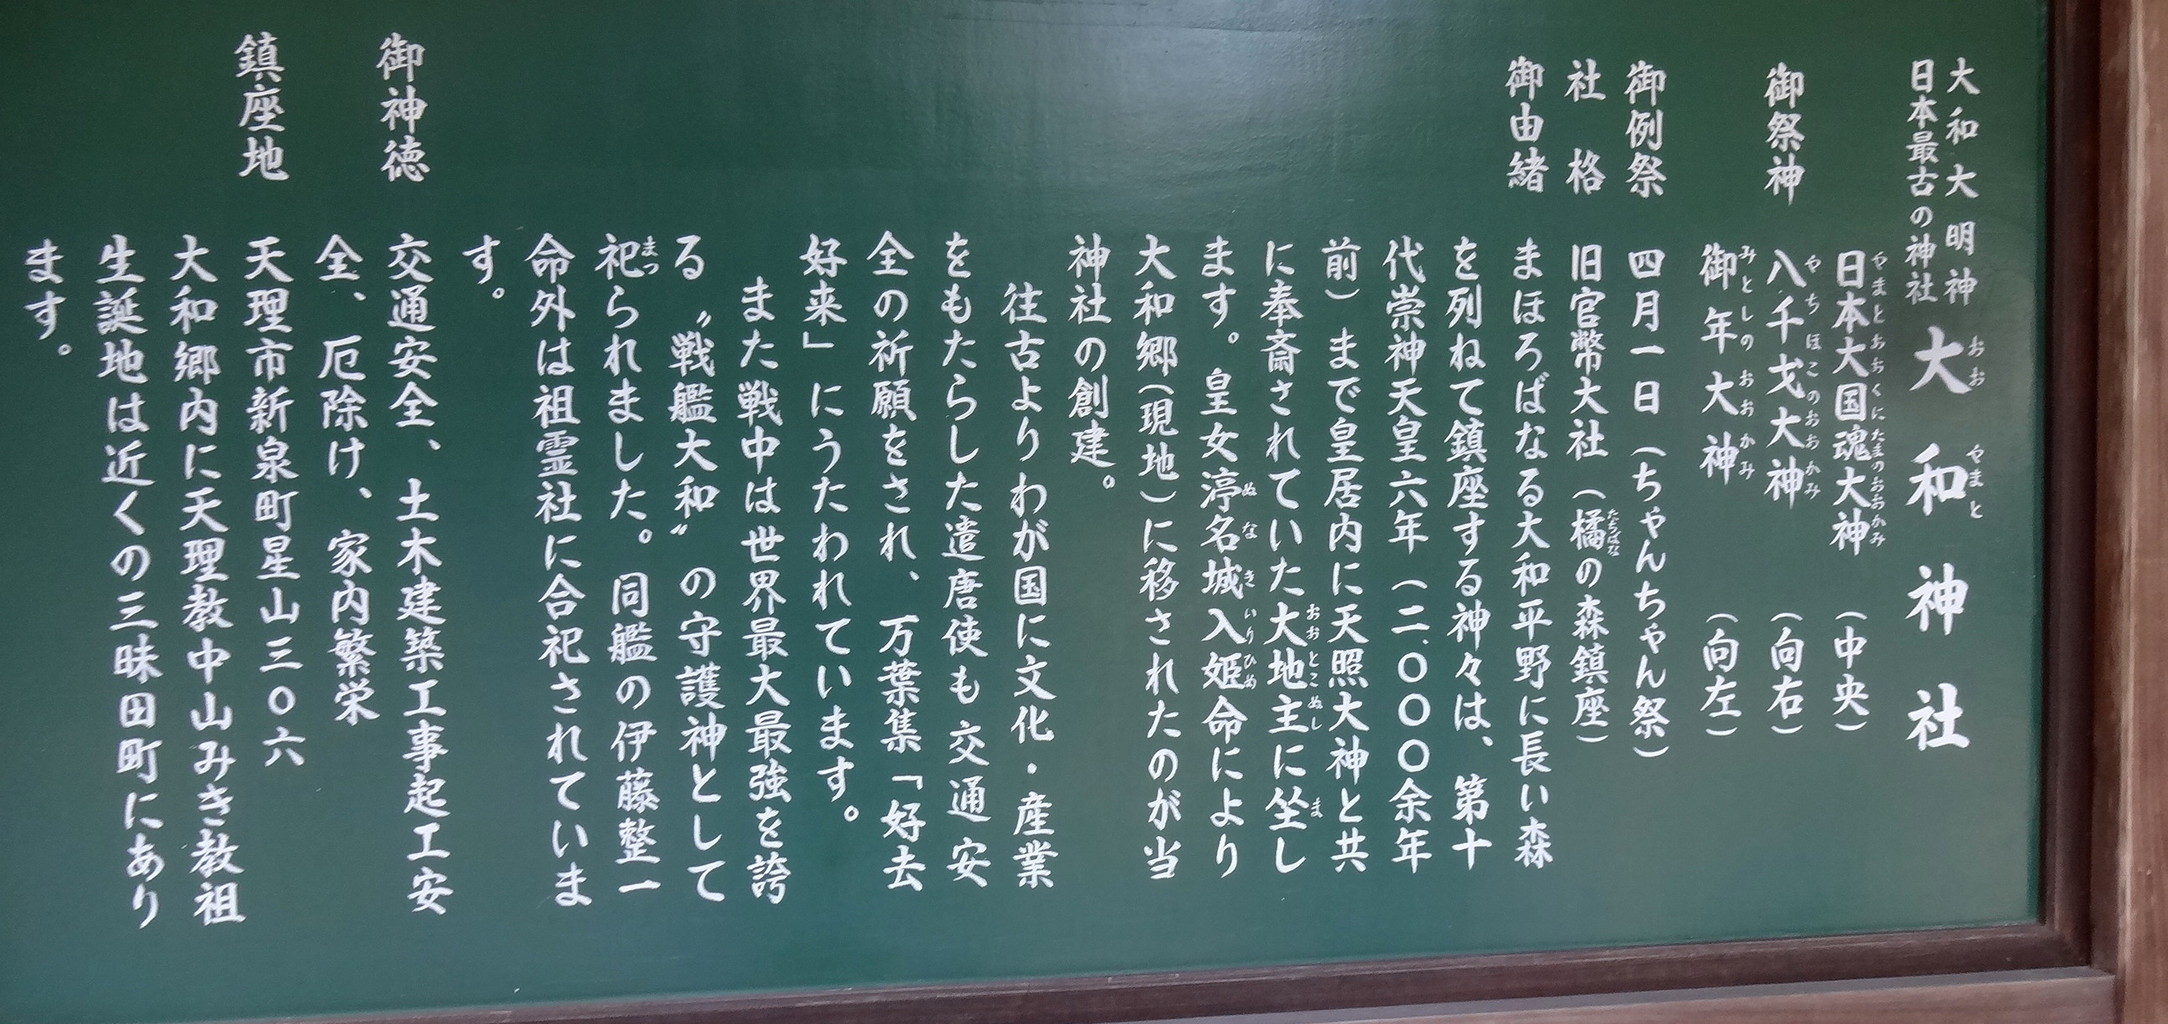 大和大明神
日本最古の神社
大和神社
おおやまと
御祭神
日本大国魂大神（中央）
やまとおおくにたまのおおかみ
八千戈大神（向右）
やちほこのおおかみ
御年大神（向左）
みとしのおおかみ
御例祭　四月一日（ちゃんちゃん祭）
社格　旧官幣大社（橘の森鎮座）
たちばな
御由緒　まほろばなる大和平野に長い森
を列ねて鎮座する神々は、第十
代崇神天皇六年（二、〇〇〇余年
前）まで皇居内に天照大神と共
に奉斎されていた大地主に坐し
おおとこぬし　ま
ます。皇女渟名城入姫命により
ぬなきいりひめ
大和郷（現地）に移されたのが当
神社の創建。
往古よりわが国に文化・産業
をもたらした遣唐使も交通安
全の祈願をされ、万葉集「好去
好来」にうたわれています。
また戦中は世界最大最強を誇
る〝戦艦大和〟の守護神として
祀られました。同艦の伊藤整一
まつ
命外は祖霊社に合祀されていま
す。
御神徳　交通安全、土木建築工事起工安
全、厄除け、家内繁栄
鎮座地　天理市新泉町星山三〇六
大和郷内に天理教中山みき教祖
生誕地は近くの三昧田町にあり
ます。